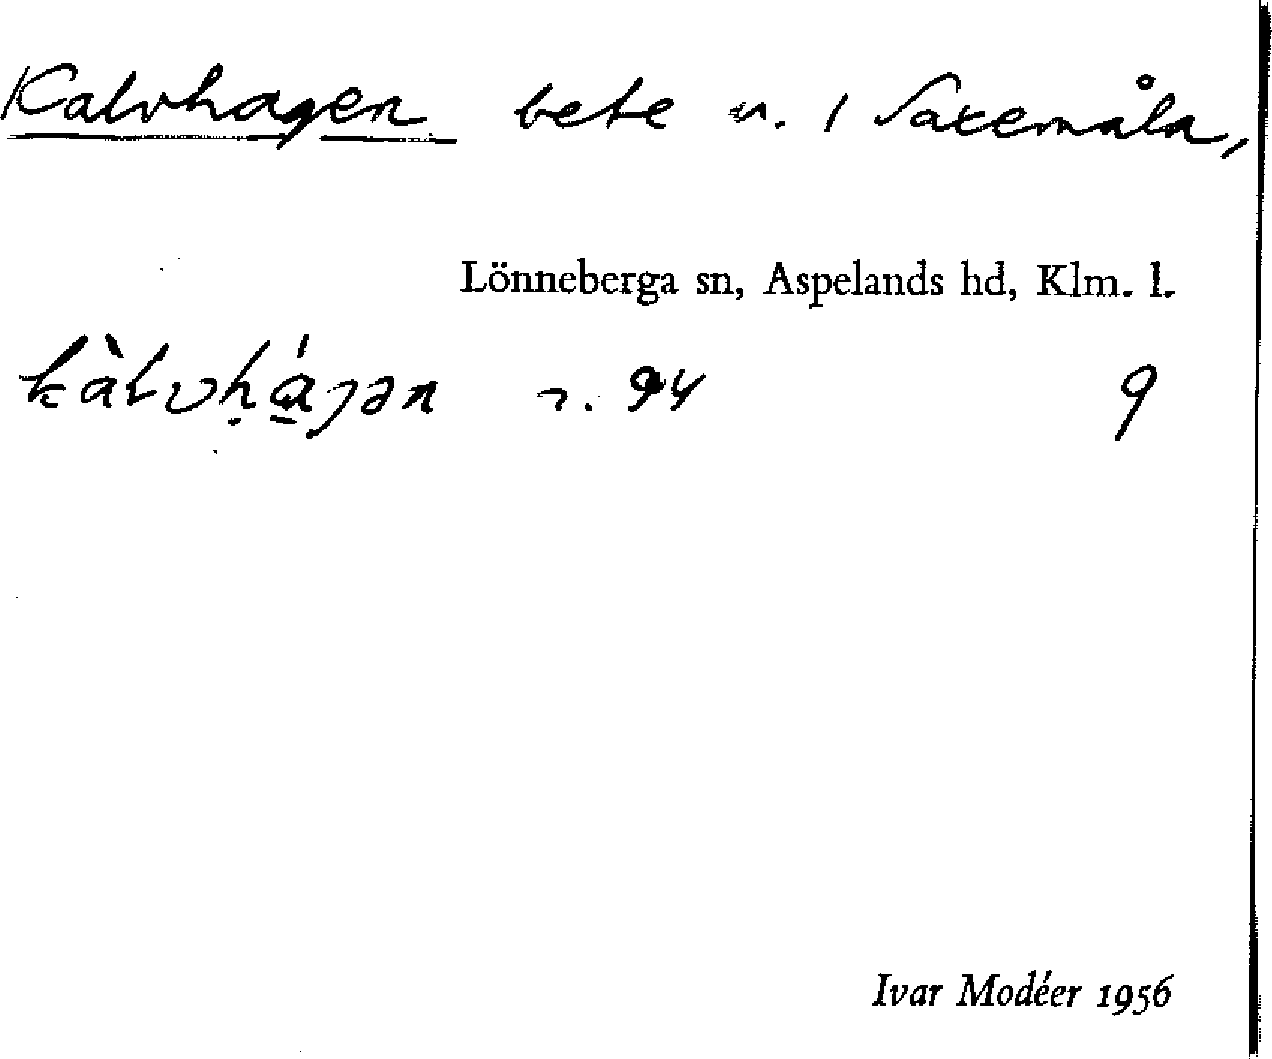 Kalvhagen bete u. 1 Saxemåla,
Lönneberga sn, Aspelands hd, Klm. l.
kàlvḥá̱ɡən r. 94 9
Ivar Modéer 1956